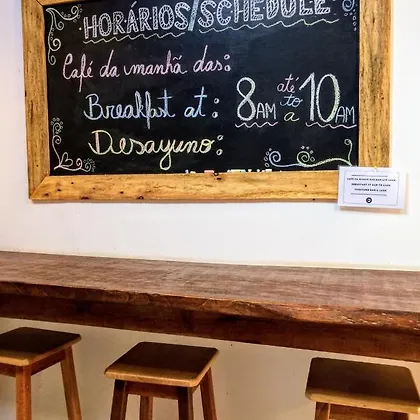 HORÁRIOS/SCHEDULE
Café da manhã das:
Breakfast at: 8AM até to a 10AM
Desayuno: